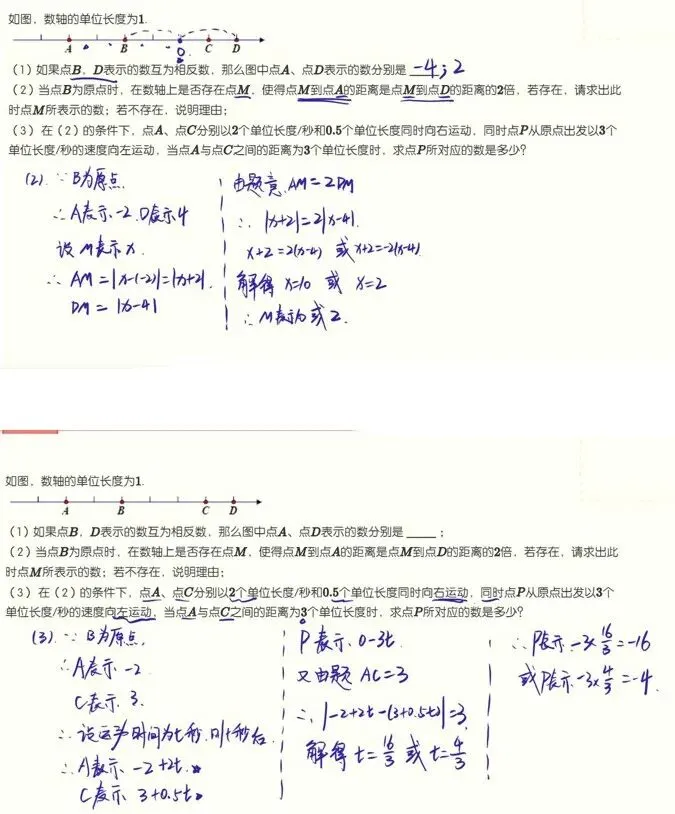 如图，数轴的单位长度为1.
A B O C D
（1）如果点B，D表示的数互为相反数，那么图中点A、点D表示的数分别是 -4；2
（2）当点B为原点时，在数轴上是否存在点M，使得点M到点A的距离是点M到点D的距离的2倍，若存在，请求出此
时点M所表示的数；若不存在，说明理由；
（3） 在（2）的条件下，点A、点C分别以2个单位长度/秒和0.5个单位长度同时向右运动，同时点P从原点出发以3个
单位长度/秒的速度向左运动，当点A与点C之间的距离为3个单位长度时，求点P所对应的数是多少？
(2). ∵B为原点.
∴A表示-2.D表示4
设M表示x.
∴ AM=|x-(-2)|=|x+2|.
DM=|x-4|
由题意.AM=2DM
∴ |x+2|=2|x-4|.
x+2=2(x-4) 或x+2=-2(x-4)
解得 x=10 或 x=2
∴M表示10或2.
如图，数轴的单位长度为1.
A B C D
（1）如果点B，D表示的数互为相反数，那么图中点A、点D表示的数分别是 ____ ；
（2）当点B为原点时，在数轴上是否存在点M，使得点M到点A的距离是点M到点D的距离的2倍，若存在，请求出此
时点M所表示的数；若不存在，说明理由；
（3） 在（2）的条件下，点A、点C分别以2个单位长度/秒和0.5个单位长度同时向右运动，同时点P从原点出发以3个
单位长度/秒的速度向左运动，当点A与点C之间的距离为3个单位长度时，求点P所对应的数是多少？
(3) ∵ B为原点.
∴A表示-2
C表示3.
∴设运动时间为t秒.则t秒后
∴A表示-2+2t.
C表示3+0.5t.
P表示0-3t.
又由题AC=3
∴ |-2+2t-(3+0.5t)|=3.
解得t=16/3或t=4/3
∴P表示-3×16/3=-16
或P表示-3×4/3=-4.